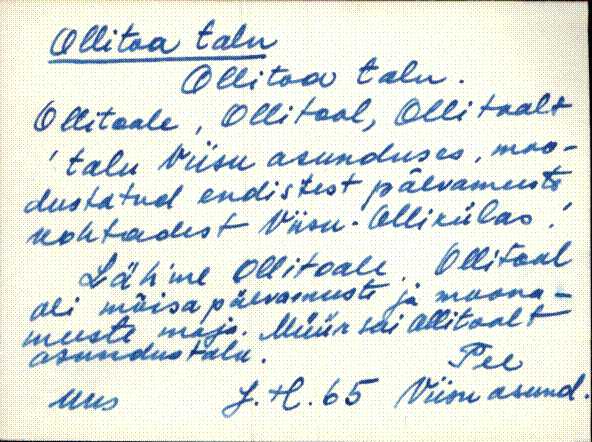 Ollitoa talu
Ollitoa talu.
Ollitoale, Ollitoal, Ollitoalt
'talu Viisu asunduses, moo-
dustatud endistest päevameeste
kohtadest Viisu-Ollikülas.'
Lähme Ollitoale. Ollitoal
oli mõisa päevameeste ja moona-
meeste maja. Müür sai Ollitoalt
asundustalu.
Pee
Uus J. H. 65 Viisu asund.